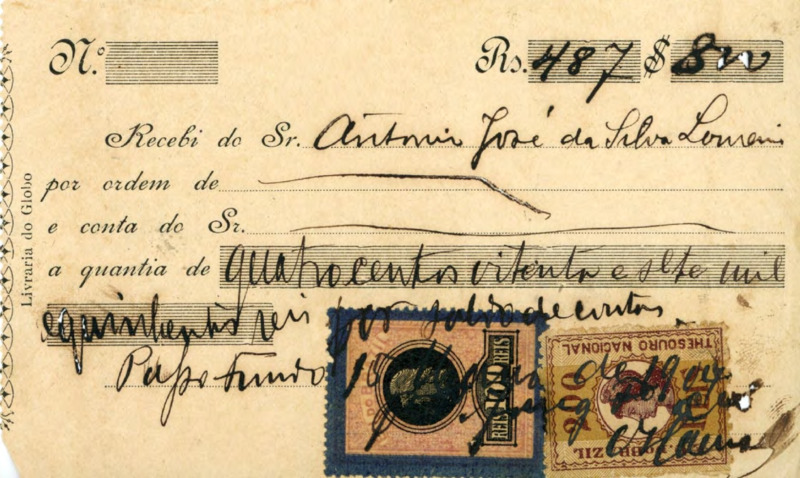 Nº Rs. 487 $
Recebi do Sr. Antonio José da Silva
por ordem de
e conta do Sr.
a quantia de quatrocentos oitenta e sete mil
e quinhentos reis por saldo de contas
Passo Fundo 18 de de
Livraria do Globo
REIS 100 REIS
THESOURO NACIONAL
200